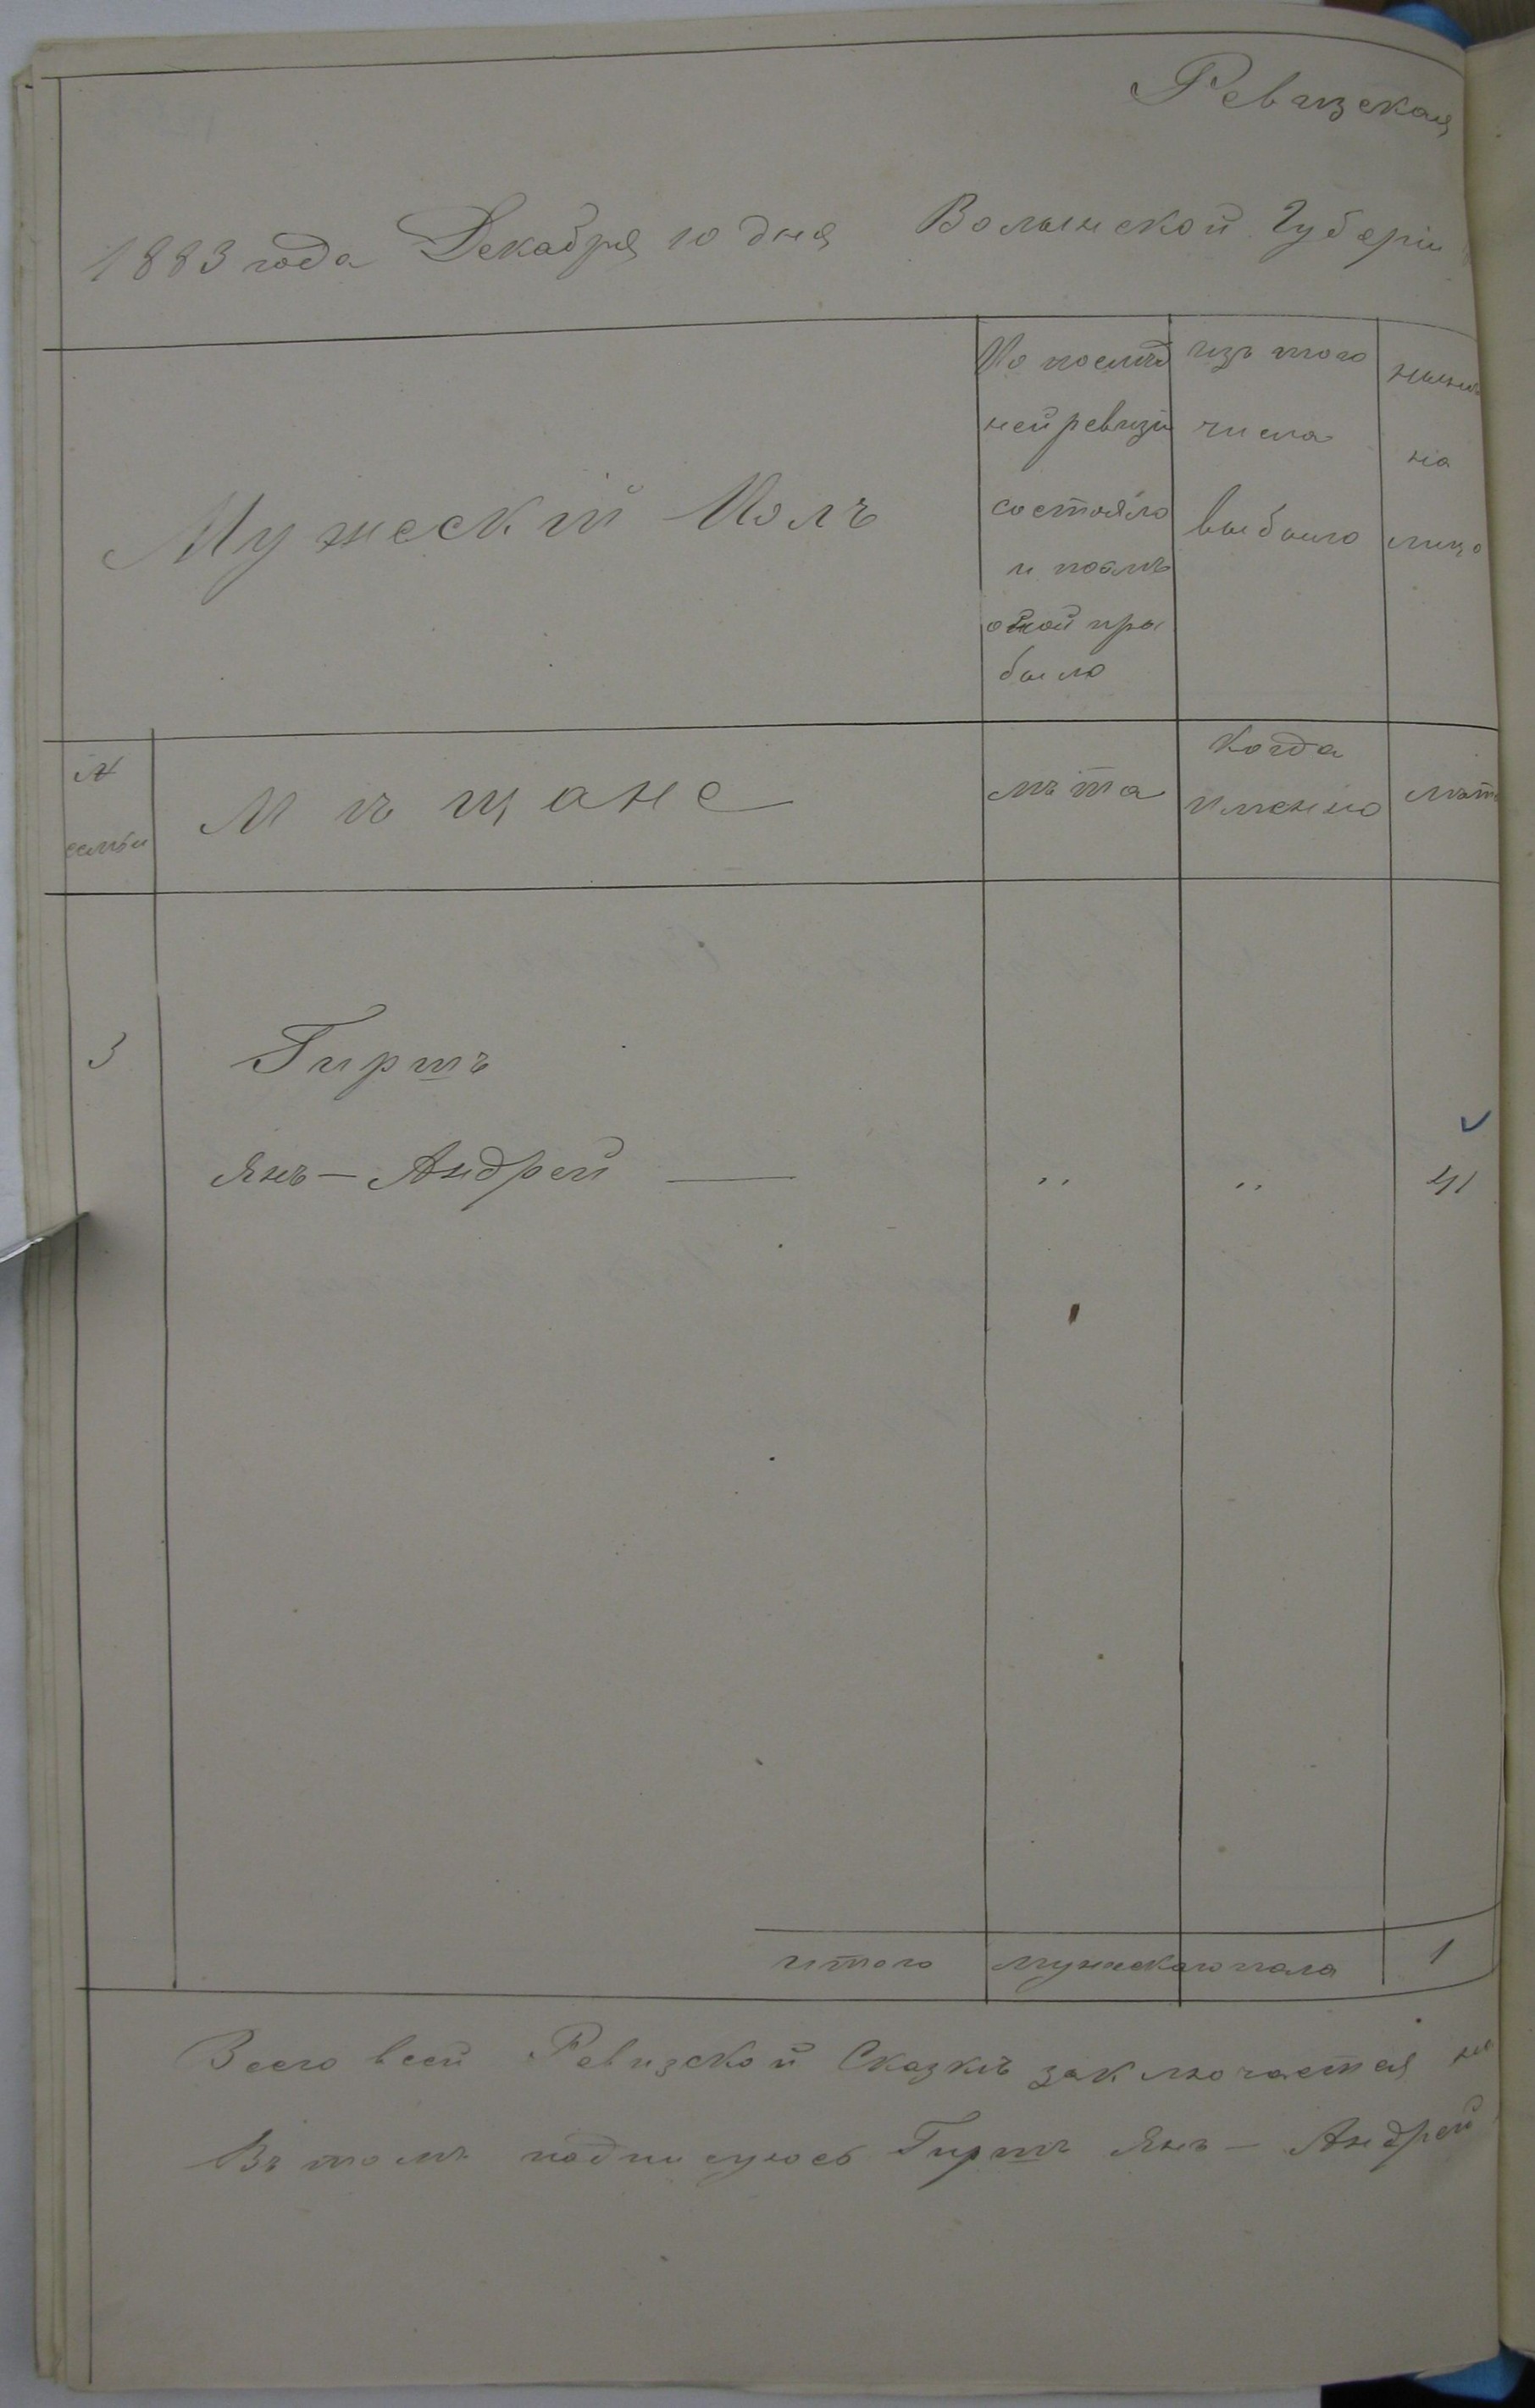 Ревизская
1883 года Декабря 10 дня Волынской Губерiи
Мужескiй Полъ
По послѣд
ней ревизiи
состояло
и послѣ
оной при
было
изъ того
числа
выбыло
нынѣ
на
лицо
№
семьи
Мѣщане
лѣта
когда
именно
лѣта
3 Гиршъ
Янъ — Андрей — " " 41
итого мужескаго пола 1
Всего всей Ревизской Сказкѣ заключается на
Въ томъ подписуюсь Гиршъ Янъ — Андрей